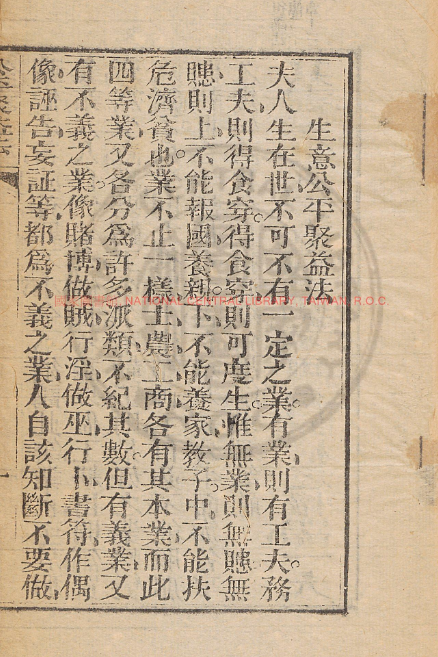 生意公平聚益法
夫人生在世不可不有一定之業有業則有工夫務
工夫則得食穿得食穿則可度生惟無業則無賬無
賬則上不能報國養親下不能養家教子中不能扶
危濟貧也業不止一樣士農工商各有其本業而此
四等業又各分為許多派類不紀其數但有義業又
有不義之業像賭博做賊行淫做巫行卜書符作偶
像誣告妄証等都為不義之業人自該知斷不要做
NATIONAL CENTRAL LIBRARY, TAIWAN, R.O.C.